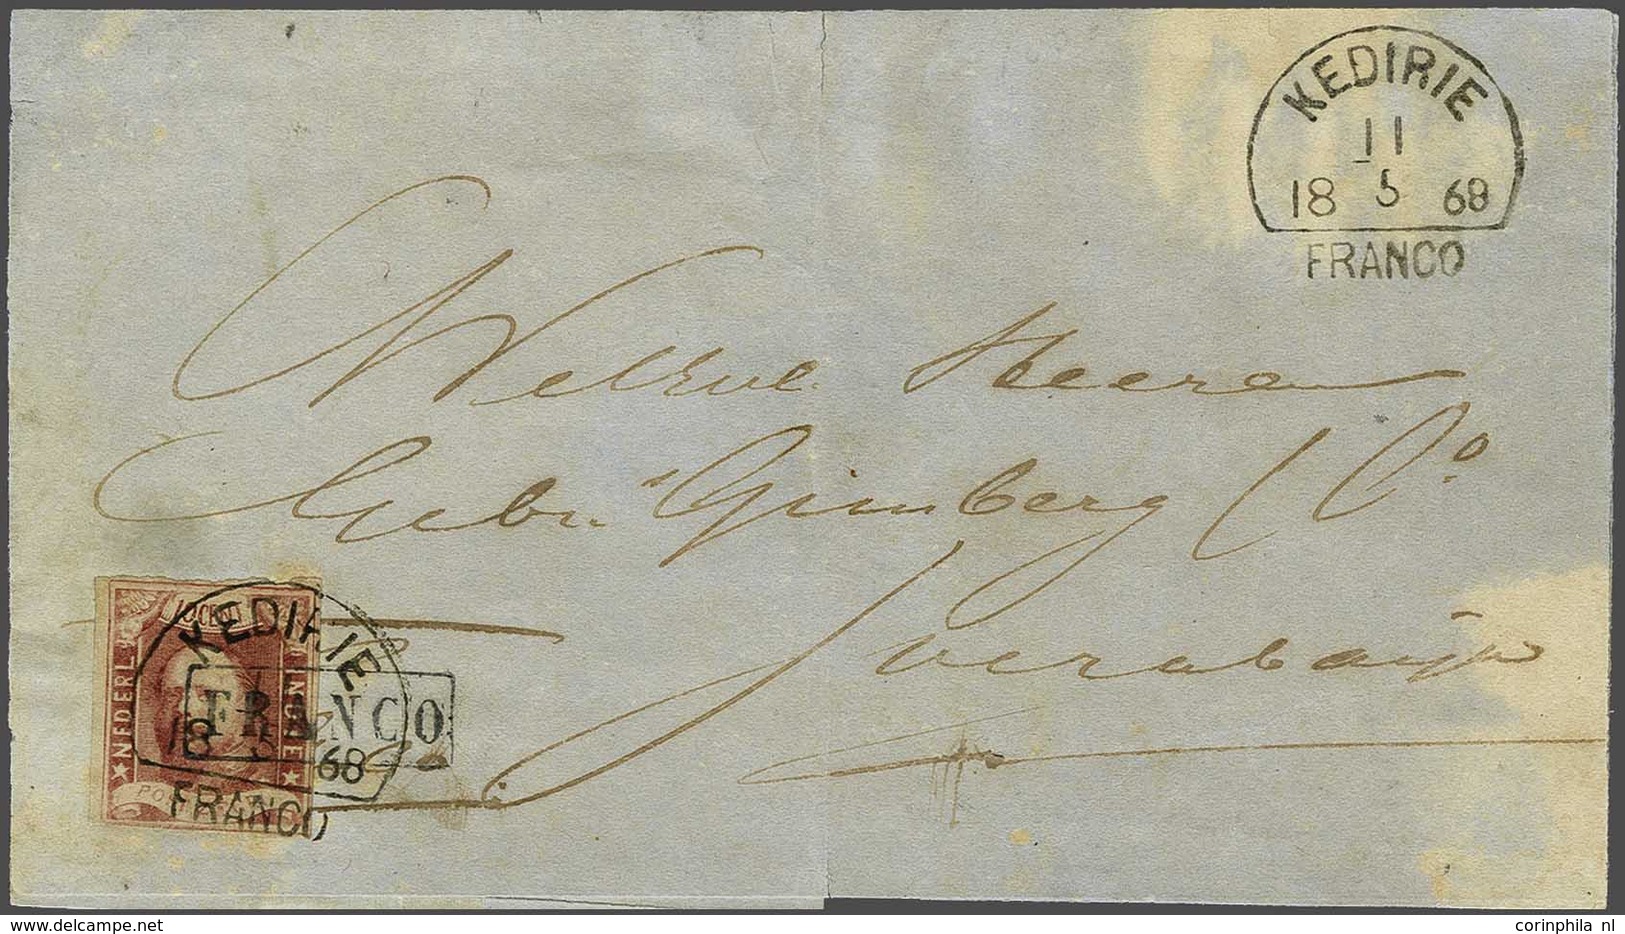 KEDIRIE
11
18 5 68
FRANCO
WelEd. Heeren
Gebr. Gimberg & Co
Soerabaija
10 CENT
NEDERL. INDIE
KEDIRIE
FRANCO
18 5 68
FRANCO
delcampe.net
corinphila nl